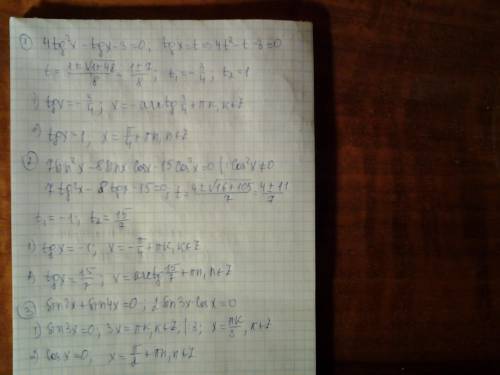 ① 4tg²x - tgx - 3 = 0, tgx = t ⇒ 4t² - t - 3 = 0
t = (1±√1+48)/8 = (1±7)/8; t₁ = -3/4; t₂ = 1
1) tgx = -3/4; x = -arctg 3/4 + πk, k∈Z
2) tgx = 1, x = π/4 + πn, n∈Z
② 7sin²x - 8sinx cosx - 15cos²x = 0 | : cos²x ≠ 0
7tg²x - 8tgx - 15 = 0; t = (4±√16+105)/7 = (4±11)/7
t₁ = -1; t₂ = 15/7
1) tgx = -1; x = -π/4 + πk, k∈Z
2) tgx = 15/7; x = arctg 15/7 + πn, n∈Z
③ sin2x + sin4x = 0; 2sin3x·cosx = 0
1) sin3x = 0; 3x = πk, k∈Z, | :3; x = πk/3, k∈Z
2) cosx = 0, x = π/2 + πn, n∈Z